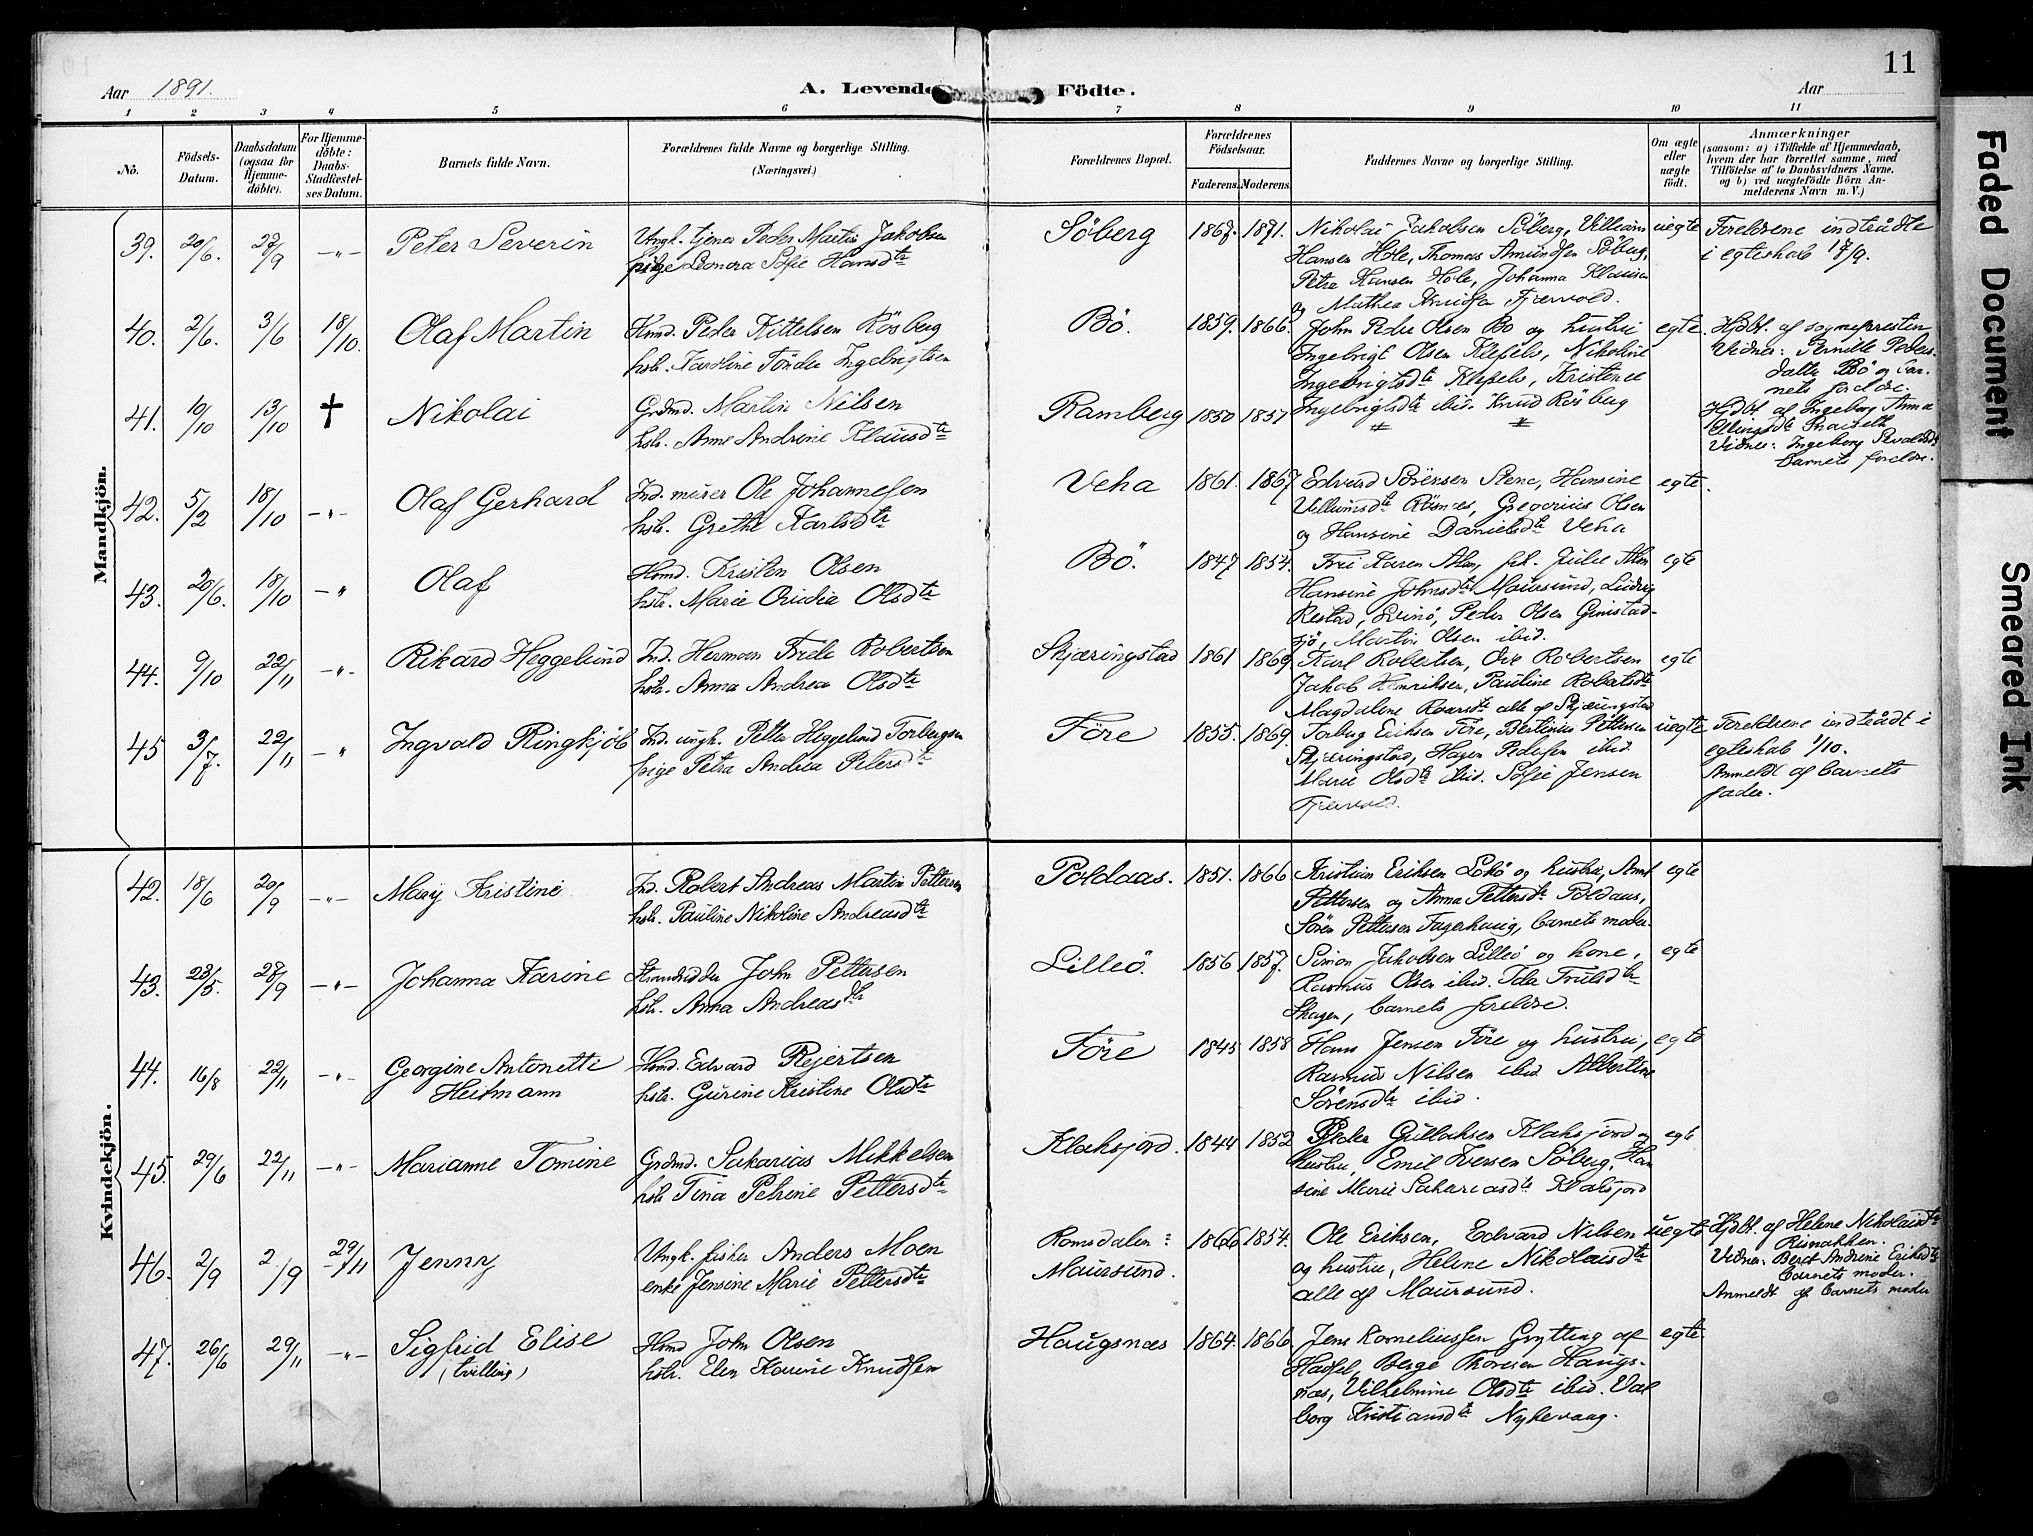 11
Aar 1891.
A. Levende Födte.
Aar
1 2 3 4 5 6 7 8 9 10 11
No.
Födsels-
Datum.
Daabsdatum
(ogsaa for
Hjemme-
döbte).
For Hjemme-
döbte:
Daabs-
Stadfæstel-
ses Datum.
Barnets fulde Navn.
Forældrenes fulde Navne og borgerlige Stilling.
(Næringsvei.)
Forældrenes Bopæl.
Forældrenes
Födselsaar.
Faderens. Moderens.
Faddernes Navne og borgerlige Stilling.
Om ægte
eller
uægte
födt.
Anmærkninger
(saasom: a) i Tilfælde af Hjemmedaab,
hvem der har forrettet samme, med
Tilföielse af to Daabsvidners Navne,
og b) ved uægtefödte Börn An-
melderens Navn m. V.)
Mandkjön.
39. 20/6. 27/9 -"- Peter Severin
Ungk. tjener Peder Martin Jakobsen
pige Leonora Sofie Hansdtr
Söberg 1867. 1871.
Nikolai Jakobsen Söberg, Villiam
Hansen Hole, Thomas Amundsen Söberg,
Petra Hansen Hole, Johanna Klausen
og Mathea Knudsen Fjærvold.
uegte
Foreldrene indtraadte
i egteskab 17/9.
40. 2/6. 3/6 18/10. Olaf Martin
Hmd. Peder Kittelsen Rösberg
hstr. Karoline Tönder Ingebrigtsen
Bö. 1859. 1866.
John Peder Olsen Bö og hustru
Ingebrigt Olsen Klepels, Nikoline
Ingebrigtsdtr Klepels, Kristence
Ingebrigtsdtr ibid. Knud Rösberg
egte.
Hjdbt. af sognepresten
Vidner: Pernille Peders-
datter Bö og bar-
nets foreldre.
41. 10/10 13/10 † Nikolai
Grdmd. Martin Nilsen
hstr. Anne Andrine Klausdtr
Ramberg 1850 1857
Hjdbt. af Ingeborg Anna
Vidner: Ingeborg
barnets foreldre.
42. 5/2 18/10 -"- Olaf Gerhard
Ind. murer Ole Johannesen
hstr. Grethe Karlsdtr
Veha 1861. 1867
Edvard Sörensen Stene, Hansine
Villumsdtr Rösnes, Gregorius Olsen
og Hansine Danielsdtr Veha
egte.
43. 20/6. 18/10 -" Olaf
Hsmd. Kristen Olsen
hstr. Marie Ovidia Olsdtr
Bö. 1847 1854.
Fru Karen Alm, frk. Julie Alm
Hansine Johnsdtr Maursund, Ludvig
Restad, Svinö, Peder Olsen Gimstad-
sjö, Martin Olsen ibid.
egte
44. 9/10 22/11 -"- Rikard Heggelund
Ind. Herman Friele Robertsen
hstr. Anna Andrea Olsdtr
Skjæringstad 1861 1869
Karl Robertsen, Ove Robertsen
Jakob Henriksen, Pauline Robertsdtr
Magdalene Roarsdtr alle af Skjæringstad
egte
45 3/7. 22/11 -" Ingvald Ringkjöb
Ind. ungk. Petter Heggelund Torbergsen
pige Petra Andrea Petersdtr
Före 1855. 1869.
Torberg Eriksen Före, Bertenius Pettersen
Skjæringstad, Hagen Pedersen ibid.
Marie Olsdtr ibid. Sofie Jensen
Fjærvold.
uegte
Foreldrene indtraadt i
egteskab 1/10.
Anmeldt af barnets
fader.
Kvindekjön.
42. 18/6 20/9 -"- Mary Kristine
Ind. Robert Andreas Martin Pettersen
hstr. Pauline Nikoline Andreasdtr
Poldaas. 1851. 1866
Kristian Eriksen Lökö og hustru, Arnt
Pettersen og Anna Pettersdtr Poldaas,
Sören Pettersen Fagerhaug, barnets moder.
egte
43. 23/5. 27/9 -"- Johanna Karine
Strandsidder John Pettersen
hstr. Anna Andreasdtr
Lilleö. 1856 1857.
Simon Jakobsen Lilleö og kone,
Rasmus Olsen ibid. Ida Trulsdtr
Skagen, barnets foreldre.
egte
44. 16/8 22/11 -"- Georgine Antonette
Heitmann
Hsmd. Edvard Rejertsen
hstr. Gurine Kristine Olsdtr
Före 1845 1858
Hans Jensen Före og hustru,
Rasmus Nilsen ibid Albertine
Sörensdtr ibid.
egte
45 29/6 22/11 -"- Marianne Tomine
Grdmd. Sakarias Mikkelsen
hstr Tina Petrine Pettersdtr
Klaksjord. 1844 1852
Peder Gullaksen Klaksjord og
hustru, Emil Iversen Söberg, Han
sine Marie Sakariasdtr Kvalsjord
egte
46. 2/9 2/9 29/11 Jenny
Ungk. fisker Anders Moen
enke Jensine Marie Pettersdtr
Romsdalen:
Maursund. 1866 1854.
Ole Eriksen, Edvard Nilsen
og hustru, Helene Nikolaisdtr
alle af Maursund.
uegte
Hjdbt. af Helene Nikolaisdtr
Risnakken.
Vidner: Beret Andrine Eriksdtr
barnets moder.
Anmeldt af barnets moder
47. 26/6 29/11 -"- Sigfrid Elise
(tvilling)
Hsmd John Olsen
hstr. Elen Karine Knudsen
Haugsnæs 1864. 1866
Jens Korneliussen Grytting af
Hadsel, Berge Thoresen Haugs-
næs, Vilhelmine Olsdtr ibid. Val
borg Kristiansdtr Nykvaag.
egte
Faded Document
Smeared Ink